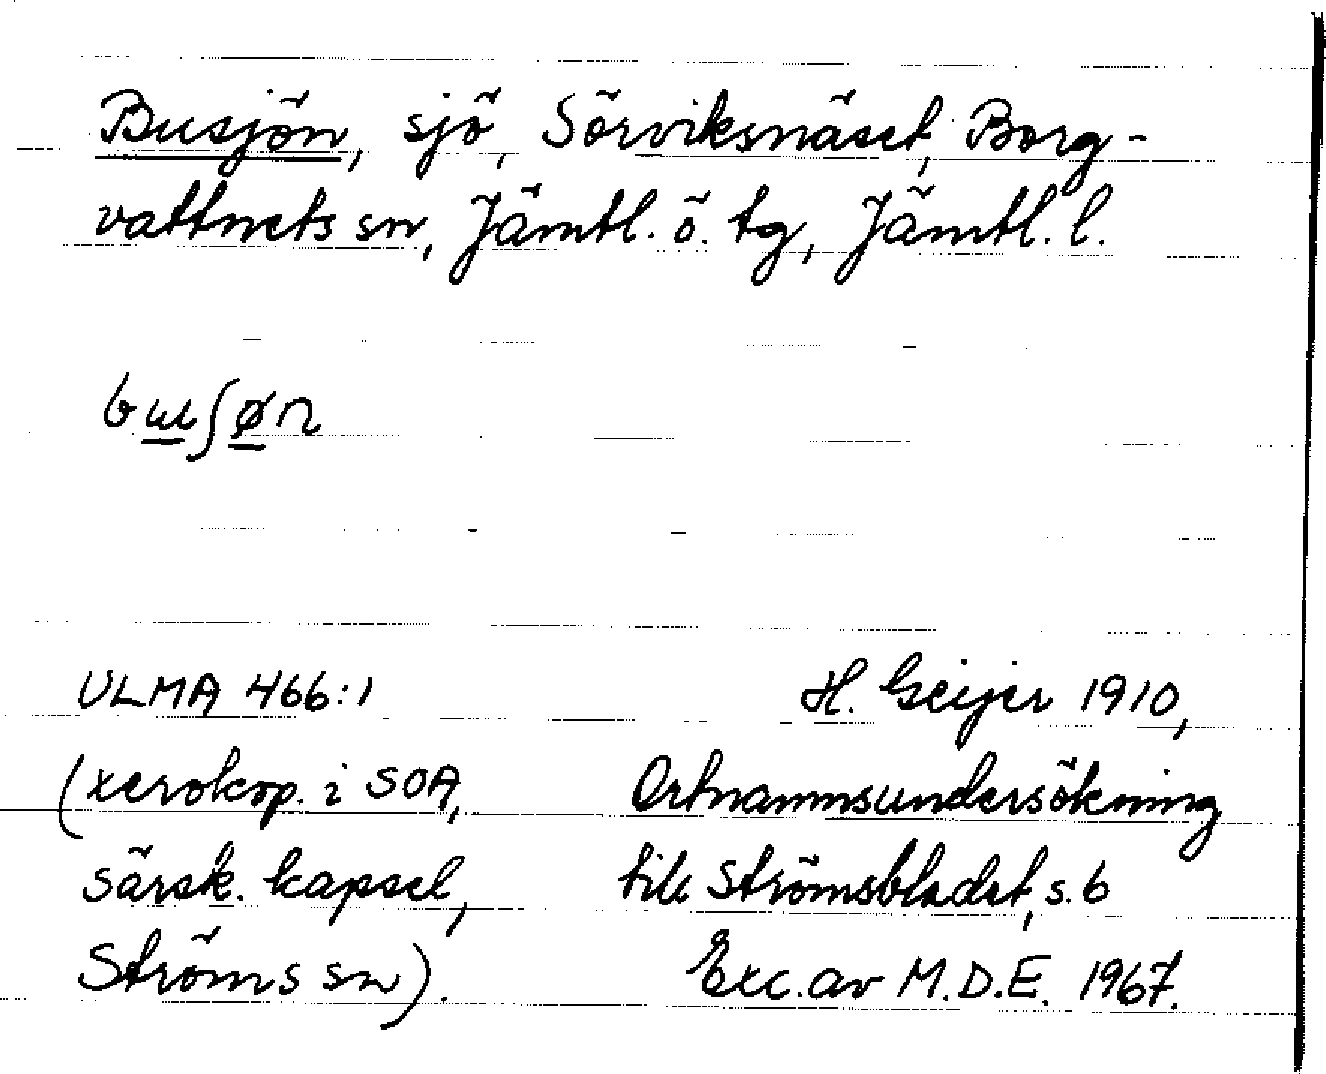 Busjön, sjö, Sörviksnäset, Borg-
vattnets sn, Jämtl. ö. tg, Jämtl. l.
bɯʃøn
ULMA 466:1
(xerokop. i SOA,
särsk. kapsel,
Ströms sn).
H. Geijer 1910,
Ortnamnsundersökning
till Strömsbladet, s. 6
Exc. av M.D.E. 1967.